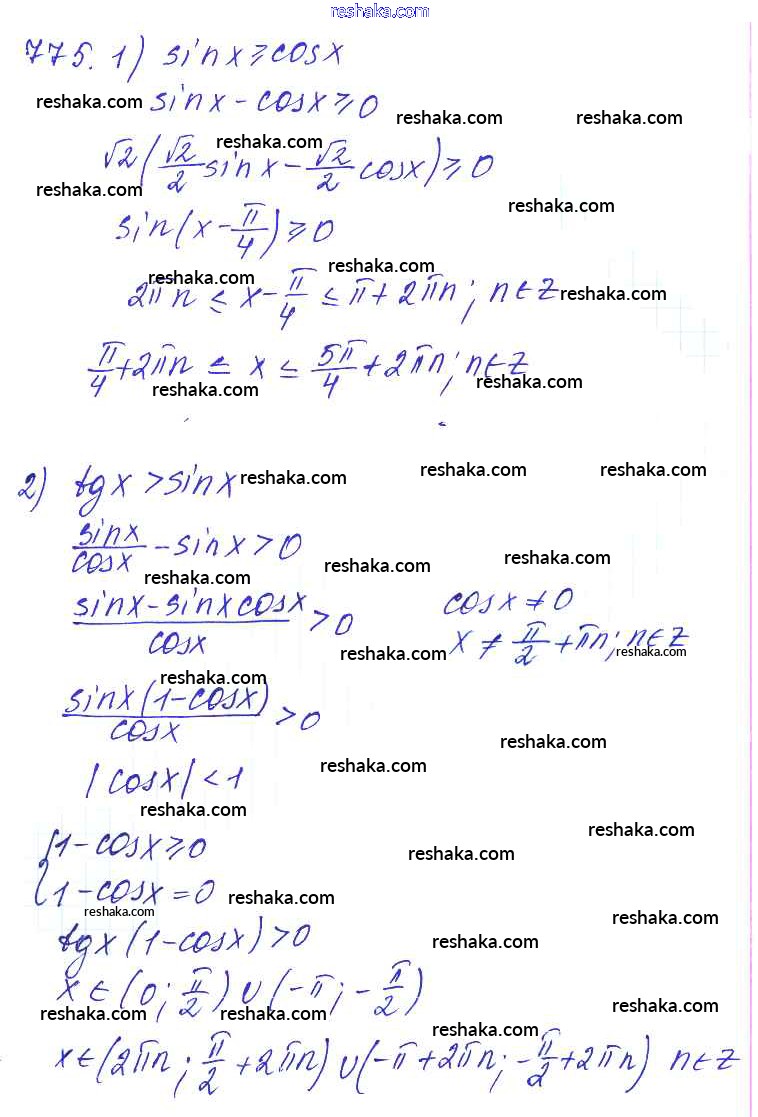 www.reshaka.com
775. 1) sin x ≥ cos x
reshaka.com sin x - cos x ≥ 0 reshaka.com reshaka.com
reshaka.com
√2(√2/2 sin x - √2/2 cos x) ≥ 0
reshaka.com reshaka.com
sin(x - π/4) ≥ 0
reshaka.com reshaka.com
2πn ≤ x - π/4 ≤ π + 2πn; n∈Z reshaka.com
π/4 + 2πn ≤ x ≤ 5π/4 + 2πn; n∈Z
reshaka.com reshaka.com
2) tg x > sin x reshaka.com reshaka.com reshaka.com
sin x/cos x - sin x > 0
reshaka.com reshaka.com reshaka.com
(sin x - sin x cos x)/cos x > 0 cos x ≠ 0
reshaka.com x ≠ π/2 + πn; n∈Z reshaka.com
reshaka.com
sin x(1 - cos x)/cos x > 0
reshaka.com
|cos x| < 1 reshaka.com
reshaka.com
{1 - cos x ≥ 0 reshaka.com reshaka.com
{1 - cos x = 0 reshaka.com
reshaka.com reshaka.com
tg x(1 - cos x) > 0 reshaka.com
x ∈ (0; π/2) ∪ (-π; -π/2)
reshaka.com reshaka.com reshaka.com
reshaka.com
x∈(2πn; π/2 + 2πn) ∪ (-π + 2πn; -π/2 + 2πn) n∈Z